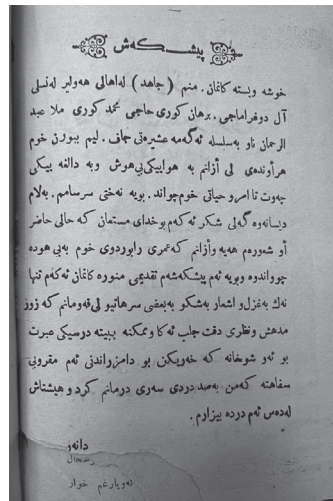 پیشکەش
خوشه ویسته کانمان. منم (جاهد) لەاهالی هەولیر لەنسلی
آل دوغراماجی. برهان کوری حاجی محمد کوری ملا عبد
الرحمان ناو بەسلسله ئەگەمه عشیرەتی جاف. لیم ببورن خوم
هرأوندەی لی أزانم به هواییکی بی هوش وبه دالغه ییکی
چەوت تا امرو حیاتی خوم چواند. بویه نەختی سرسامم. بەلام
دیسانەوە گەلی شکر ئەکەم بوخدای مستعان کە حالی حاضر
أو شعورەم هەیه وأزانم کەعمری رابوردوی خوم بەبی هوده
چوواندوە وبویه ئەم پیشکەشەم تقدیمی منوره کانمان ئەکەم تنها
نەك بەغزل و اشعار بەشکو بەبعضی سرهاتیو لی قەومانم کە زور
مدهش ونظری دقت جلب ئەکا وممکنه ببیته درسیکی عبرت
بو ئەو شوخانه کە خەریکن بو دامزراندنی ئەم مقرویی
سفاهته کەمن بەصد دردی سەری درمانم کرد و هیشتاش
لەدەس ئەم دردە بیزارم.
دانەر
ئەوپارغم خوار